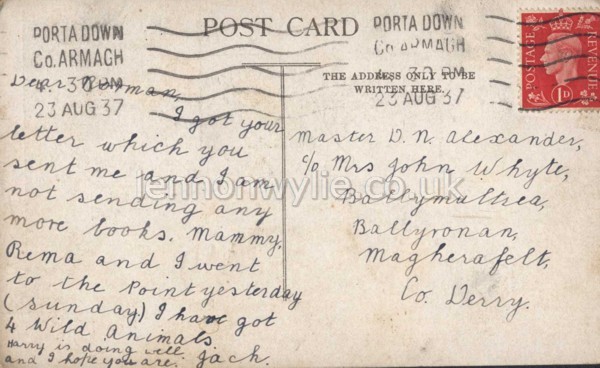 PORTADOWN
Co. ARMAGH
4. 30 PM
23 AUG 37
POST CARD
PORTADOWN
Co. ARMAGH
4. 30 PM
23 AUG 37
POSTAGE
REVENUE
1D
THE ADDRESS ONLY TO BE
WRITTEN HERE.
Dear Norman,
I got your
letter which you
sent me and I am
not sending any
more books. Mammy,
Rema and I went
to the Point yesterday
(Sunday) I have got
4 Wild Animals.
Harry is doing well
and I hope you are. Jack.
Master D. N. Alexander,
c/o Mrs John Whyte,
Ballymultrea,
Ballyronan,
Magherafelt,
Co. Derry.
lennonwylie.co.uk